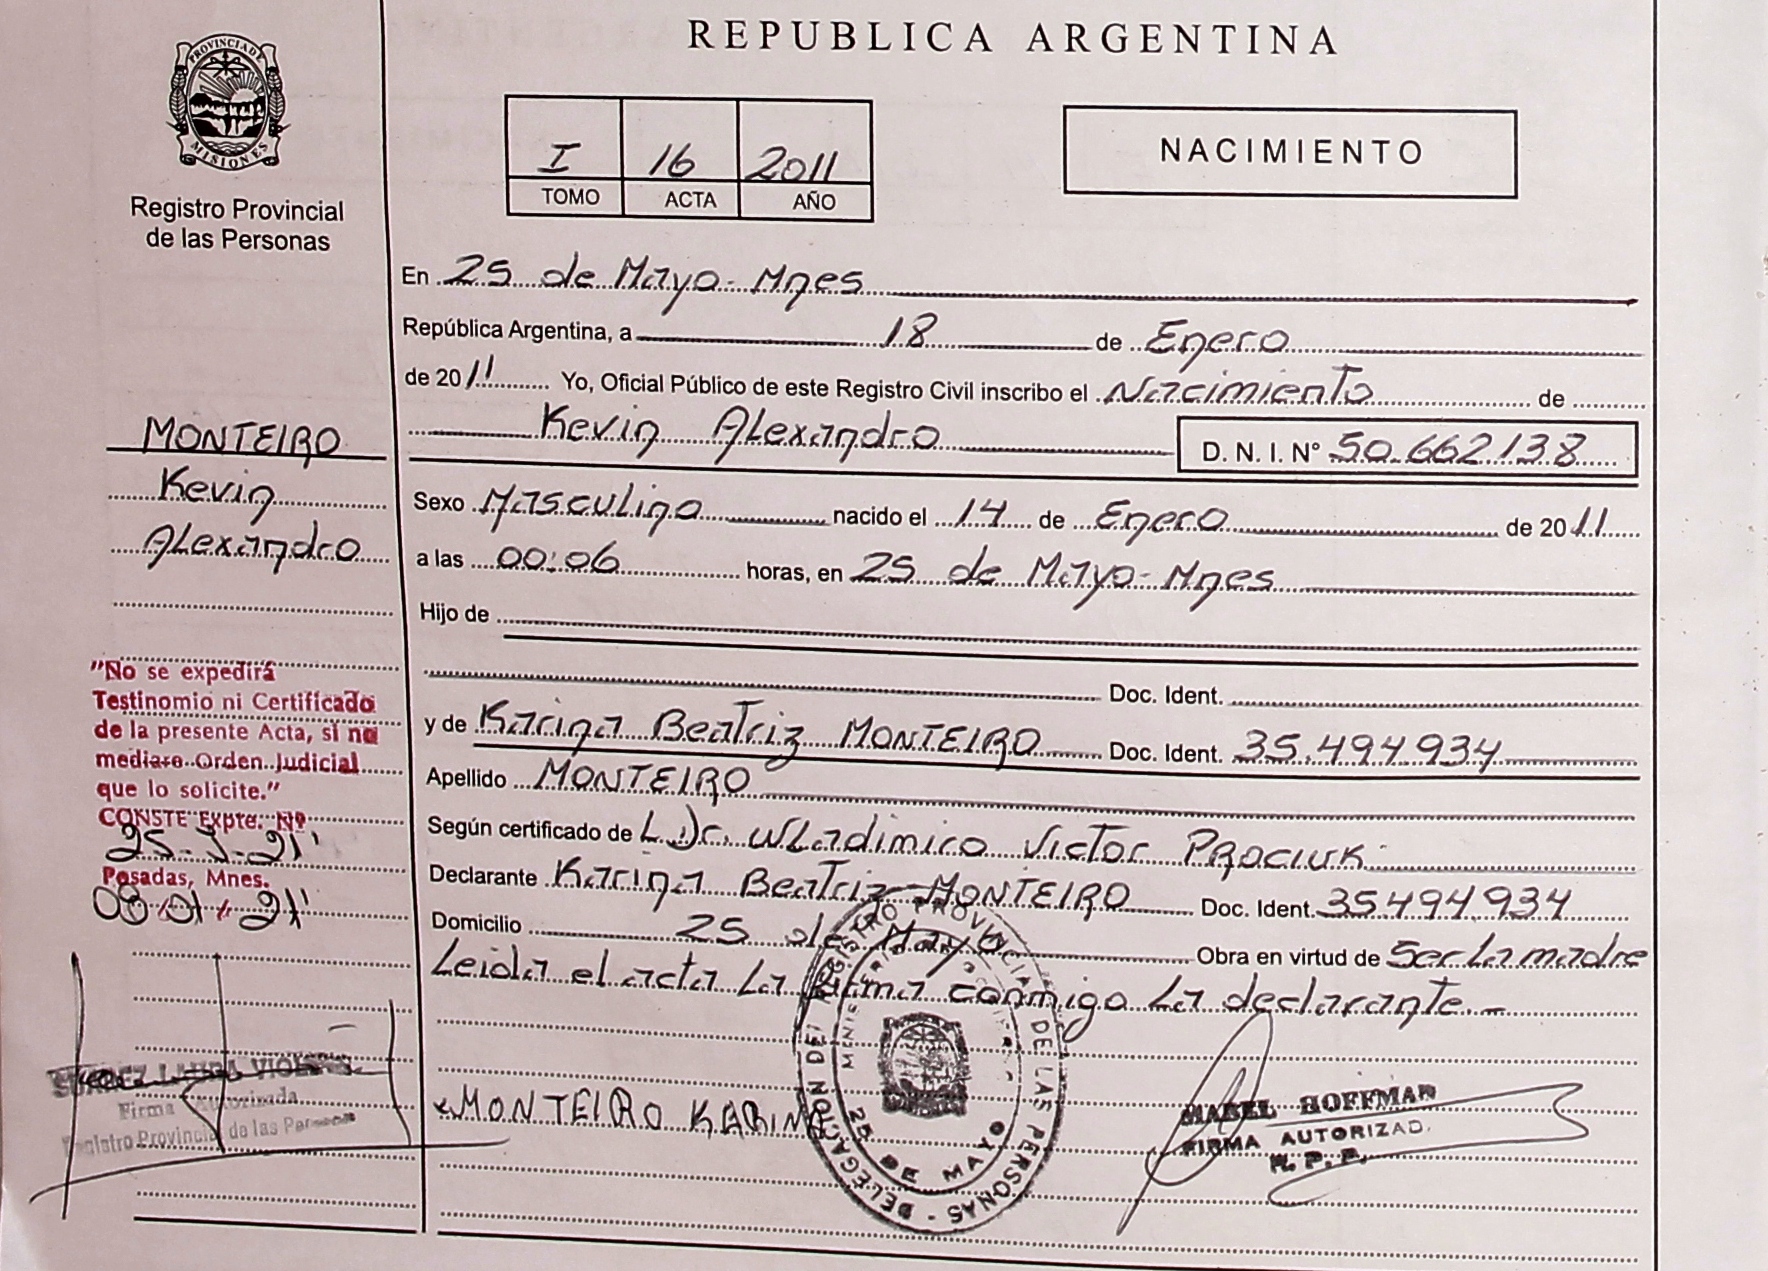 REPUBLICA ARGENTINA
PROVINCIA DE
MISIONES
Registro Provincial
de las Personas
I 16 2011
TOMO ACTA AÑO
NACIMIENTO
En 25 de Mayo - Mnes
República Argentina, a 18 de Enero
de 2011 Yo, Oficial Público de este Registro Civil inscribo el Nacimiento de
Kevin Alexandro D. N. I. N° 50.662.138
Sexo Masculino nacido el 14 de Enero de 2011
a las 00:06 horas, en 25 de Mayo - Mnes
Hijo de
Doc. Ident.
y de Karina Beatriz MONTEIRO Doc. Ident. 35.494.934
Apellido MONTEIRO
Según certificado de L Dr. Wladimiro Victor PROCIUK
Declarante Karina Beatriz MONTEIRO Doc. Ident. 35.494.934
Domicilio 25 de Mayo Obra en virtud de Ser La madre
Leida el acta La firma conmigo La declarante.-
MONTEIRO KARINA
MONTEIRO
Kevin
Alexandro
"No se expedirá
Testinomio ni Certificado
de la presente Acta, si no
mediare Orden Judicial
que lo solicite."
CONSTE Expte. Nº
Posadas, Mnes.
SUAREZ LAURA
Firma Autorizada
Registro Provincial de las Personas
DELEGACION DEL REGISTRO PROVINCIAL DE LAS PERSONAS -
25 DE MAYO
MABEL HOFFMAN
FIRMA AUTORIZAD.
R. P. P.